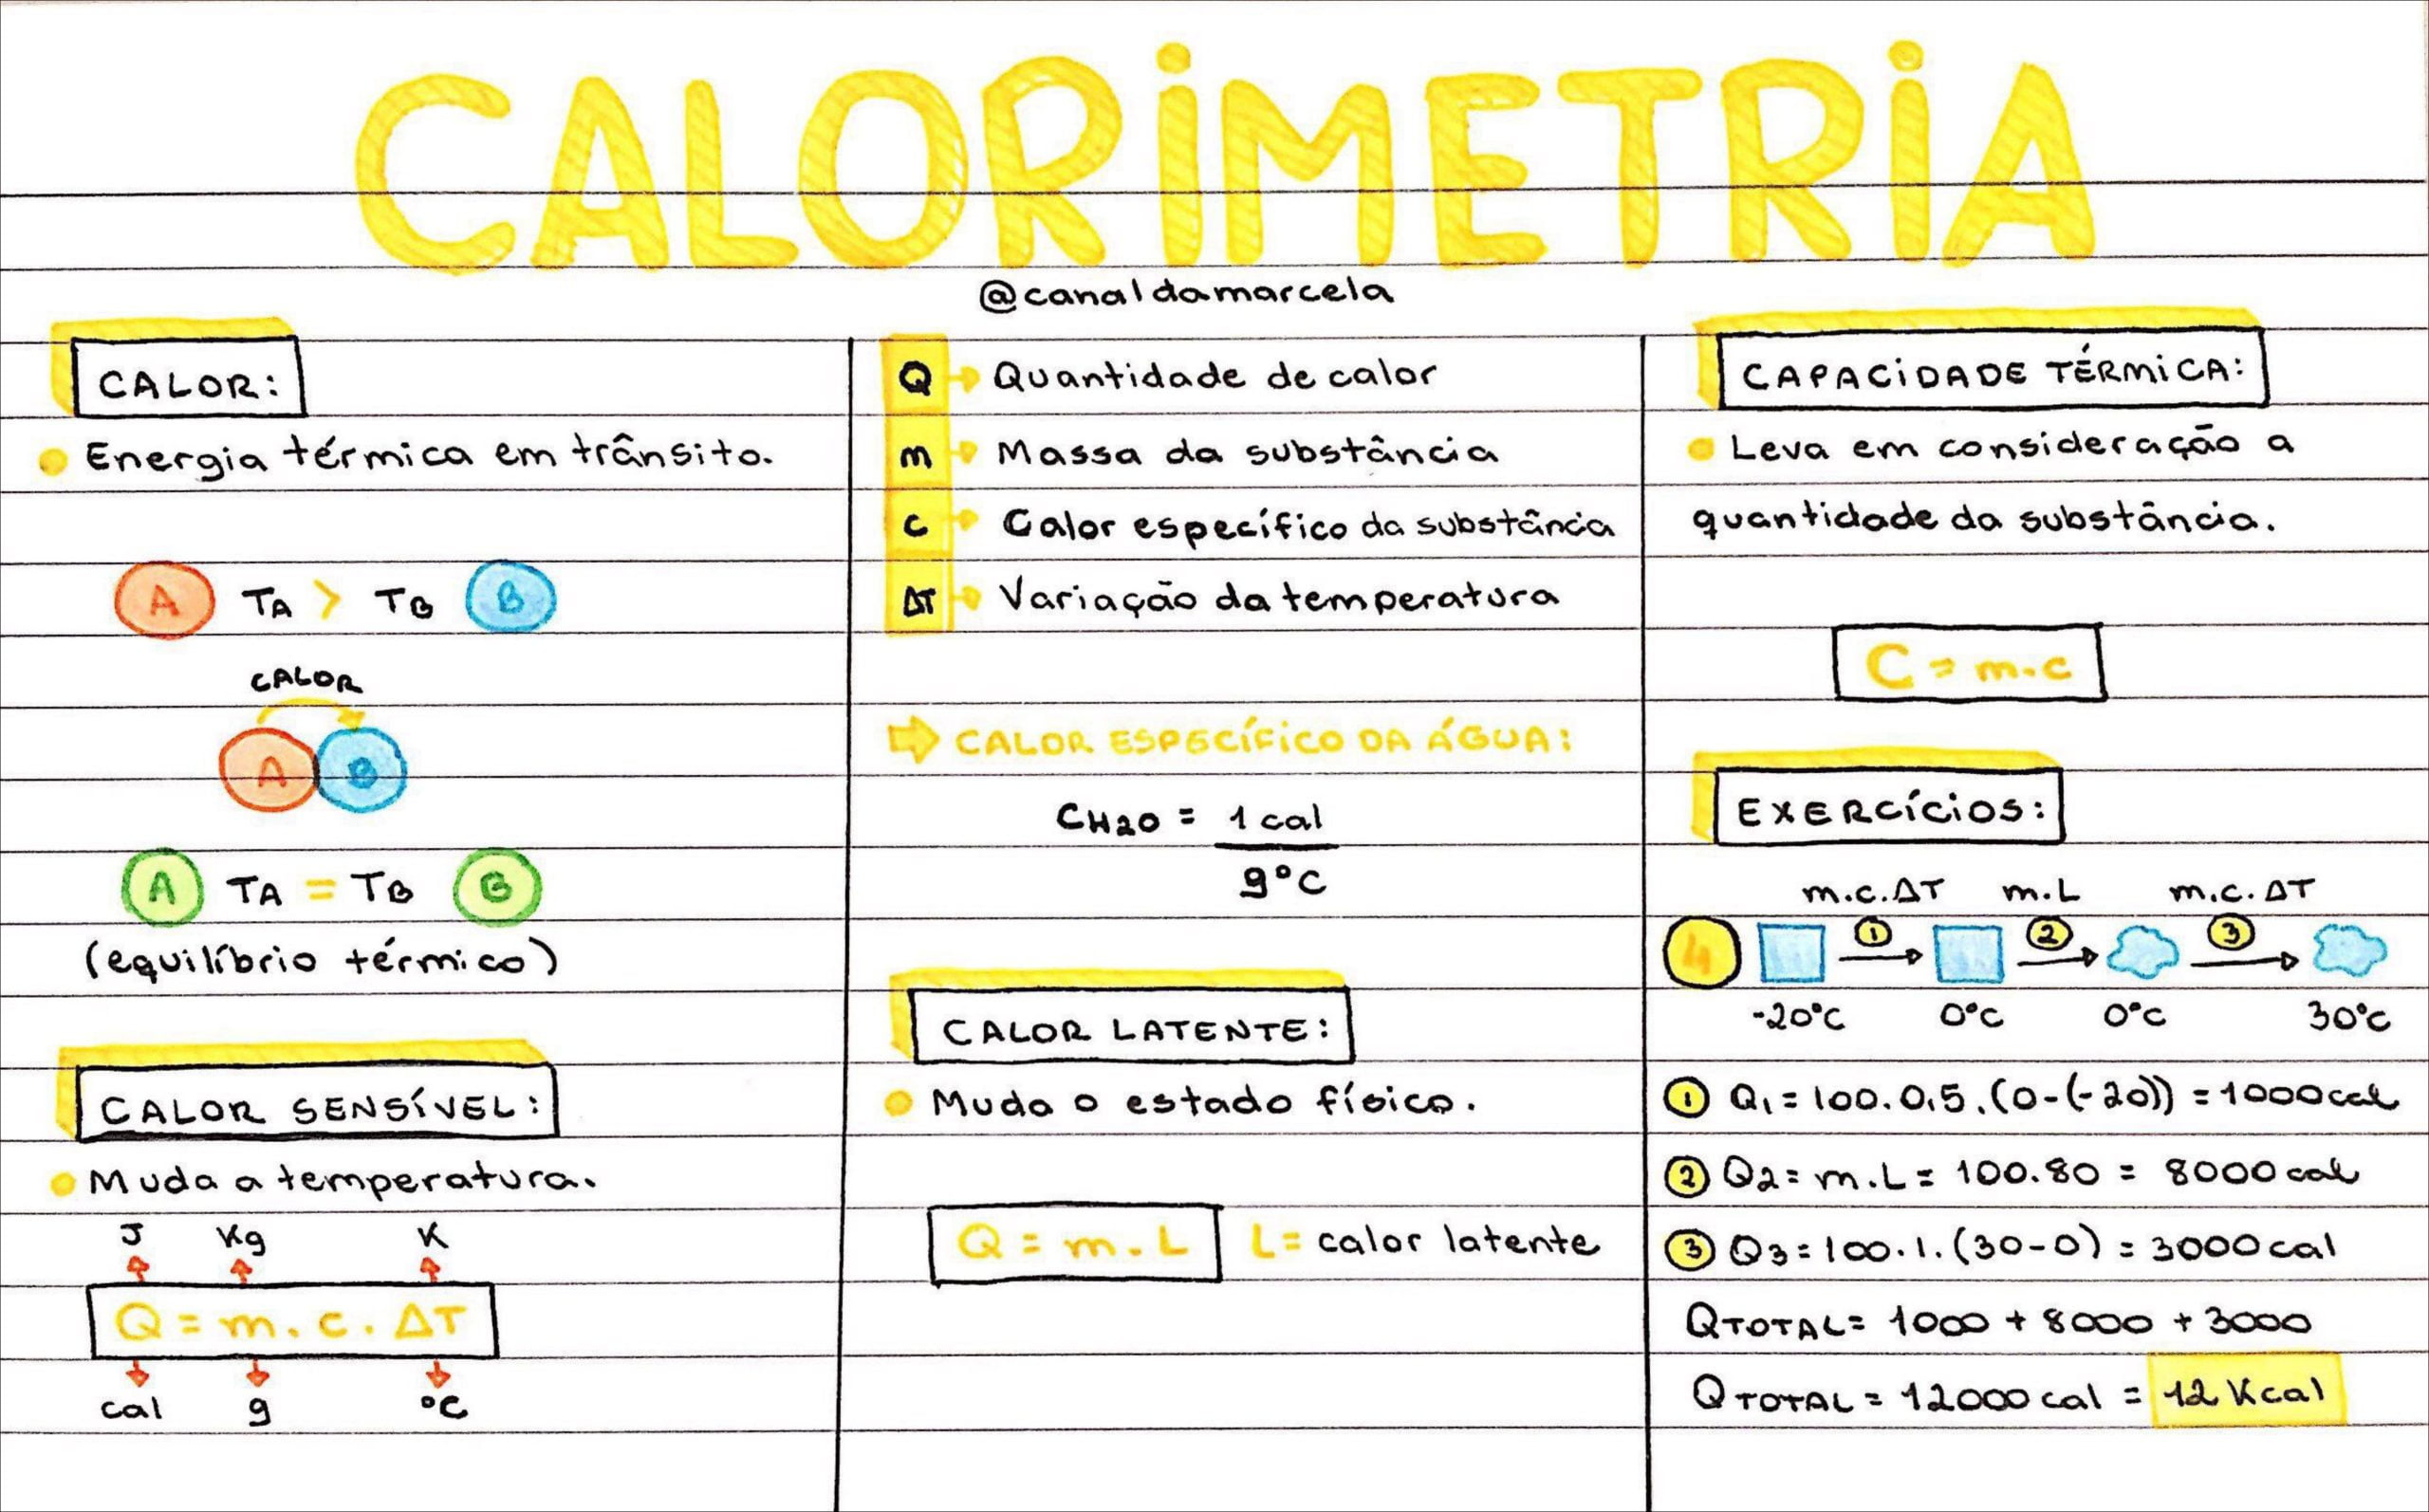 CALORiMETRiA
@canaldamarcela
CALOR:
Energia térmica em trânsito.
A TA > TB B
CALOR
A B
A TA = TB B
(equilíbrio térmico)
CALOR SENSÍVEL:
Muda a temperatura.
J Kg K
Q = m . c . ΔT
cal g °C
Q → Quantidade de calor
m → Massa da substância
c → Calor específico da substância
ΔT → Variação da temperatura
⇒ CALOR ESPECÍFICO DA ÁGUA:
CH2O = 1 cal
g°C
CALOR LATENTE:
Muda o estado físico.
Q = m . L L = calor latente
CAPACiDADE TÉRMiCA:
Leva em consideração a
quantidade da substância.
C = m.c
EXERCíCiOS:
m.c.ΔT m.L m.c.ΔT
4 1 → 2 → 3 →
-20°C 0°C 0°C 30°C
1 Q1 = 100. 0,5 . (0-(-20)) = 1000 cal
2 Q2 = m.L = 100.80 = 8000 cal
3 Q3 = 100.1.(30-0) = 3000 cal
QTOTAL = 1000 + 8000 + 3000
QTOTAL = 12000 cal = 12 Kcal